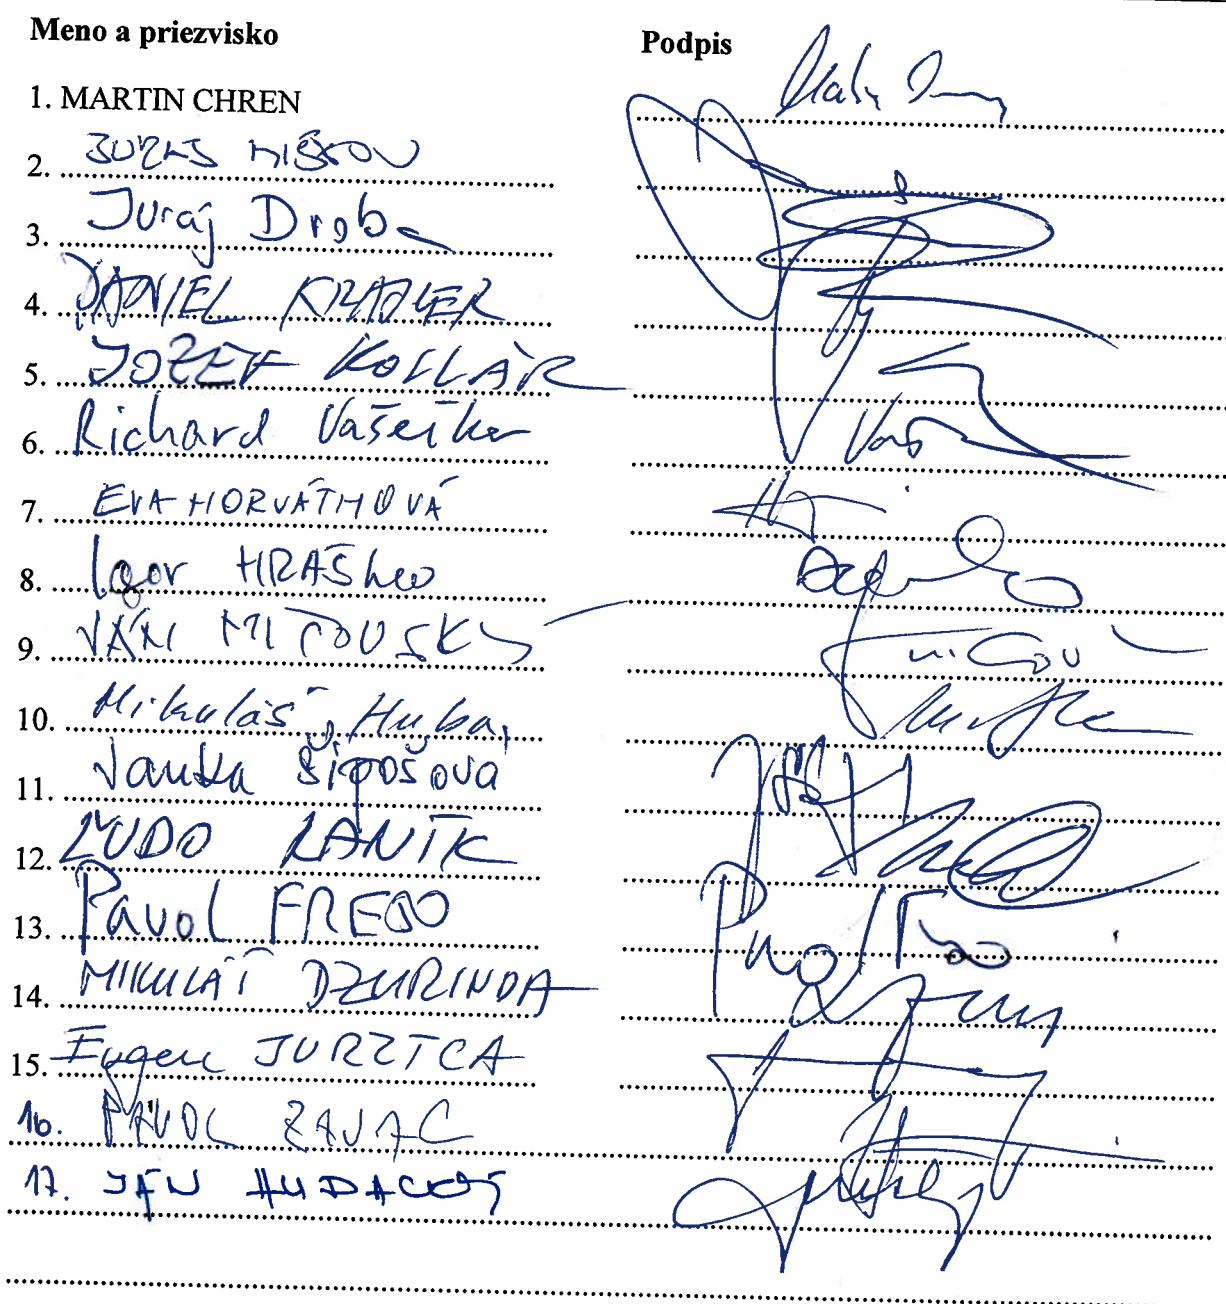 Meno a priezvisko Podpis
1. MARTIN CHREN
2. JURAJ MIŠKOV
3. Juraj Droba
4. DANIEL KRAJCER
5. JOZEF KOLLÁR
6. Richard Vašečka
7. EVA HORVÁTHOVÁ
8. Igor HRAŠKO
9. JÁN MIČOVSKÝ
10. Mikuláš Huba
11. Janka Šípošová
12. ĽUDO KANÍK
13. Pavol FREŠO
14. MIKULÁŠ DZURINDA
15. Eugen JURZYCA
16. PAVOL ZAJAC
17. JÁN HUDACKÝ